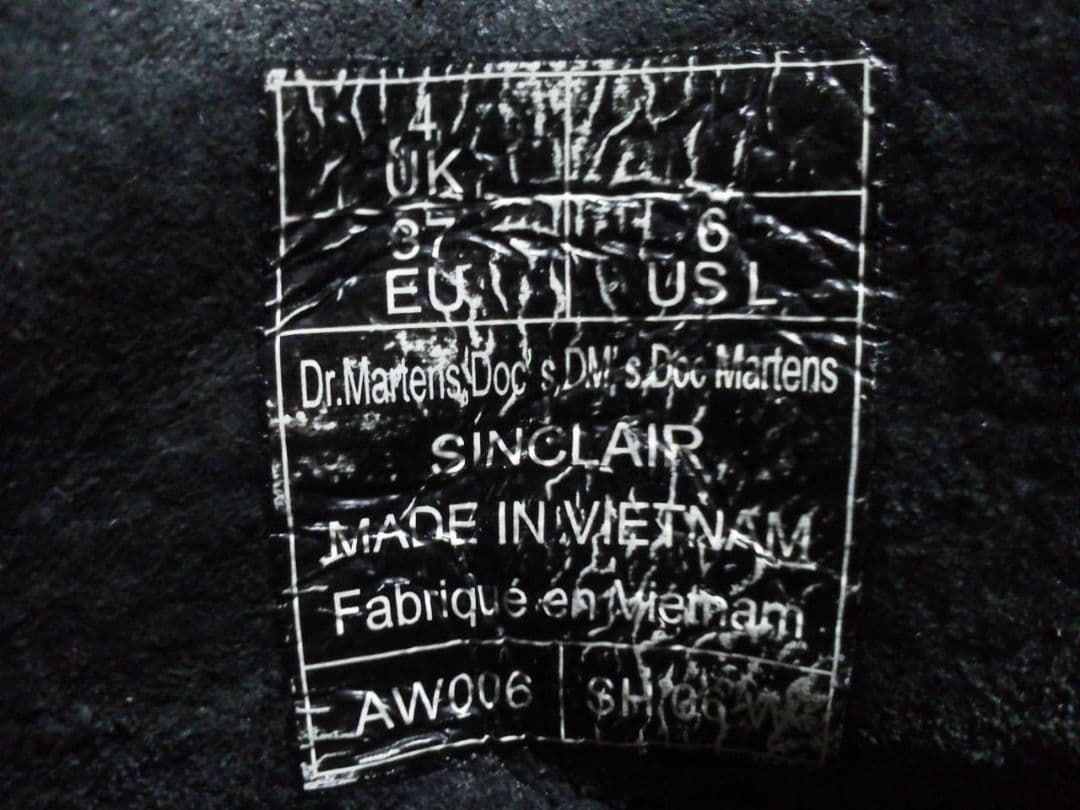 4
UK
37
EU
6
US L
Dr.Martens,Doc's,DM's,Doc Martens
SINCLAIR
MADE IN VIETNAM
Fabriqué en Vietnam
AW006
SH